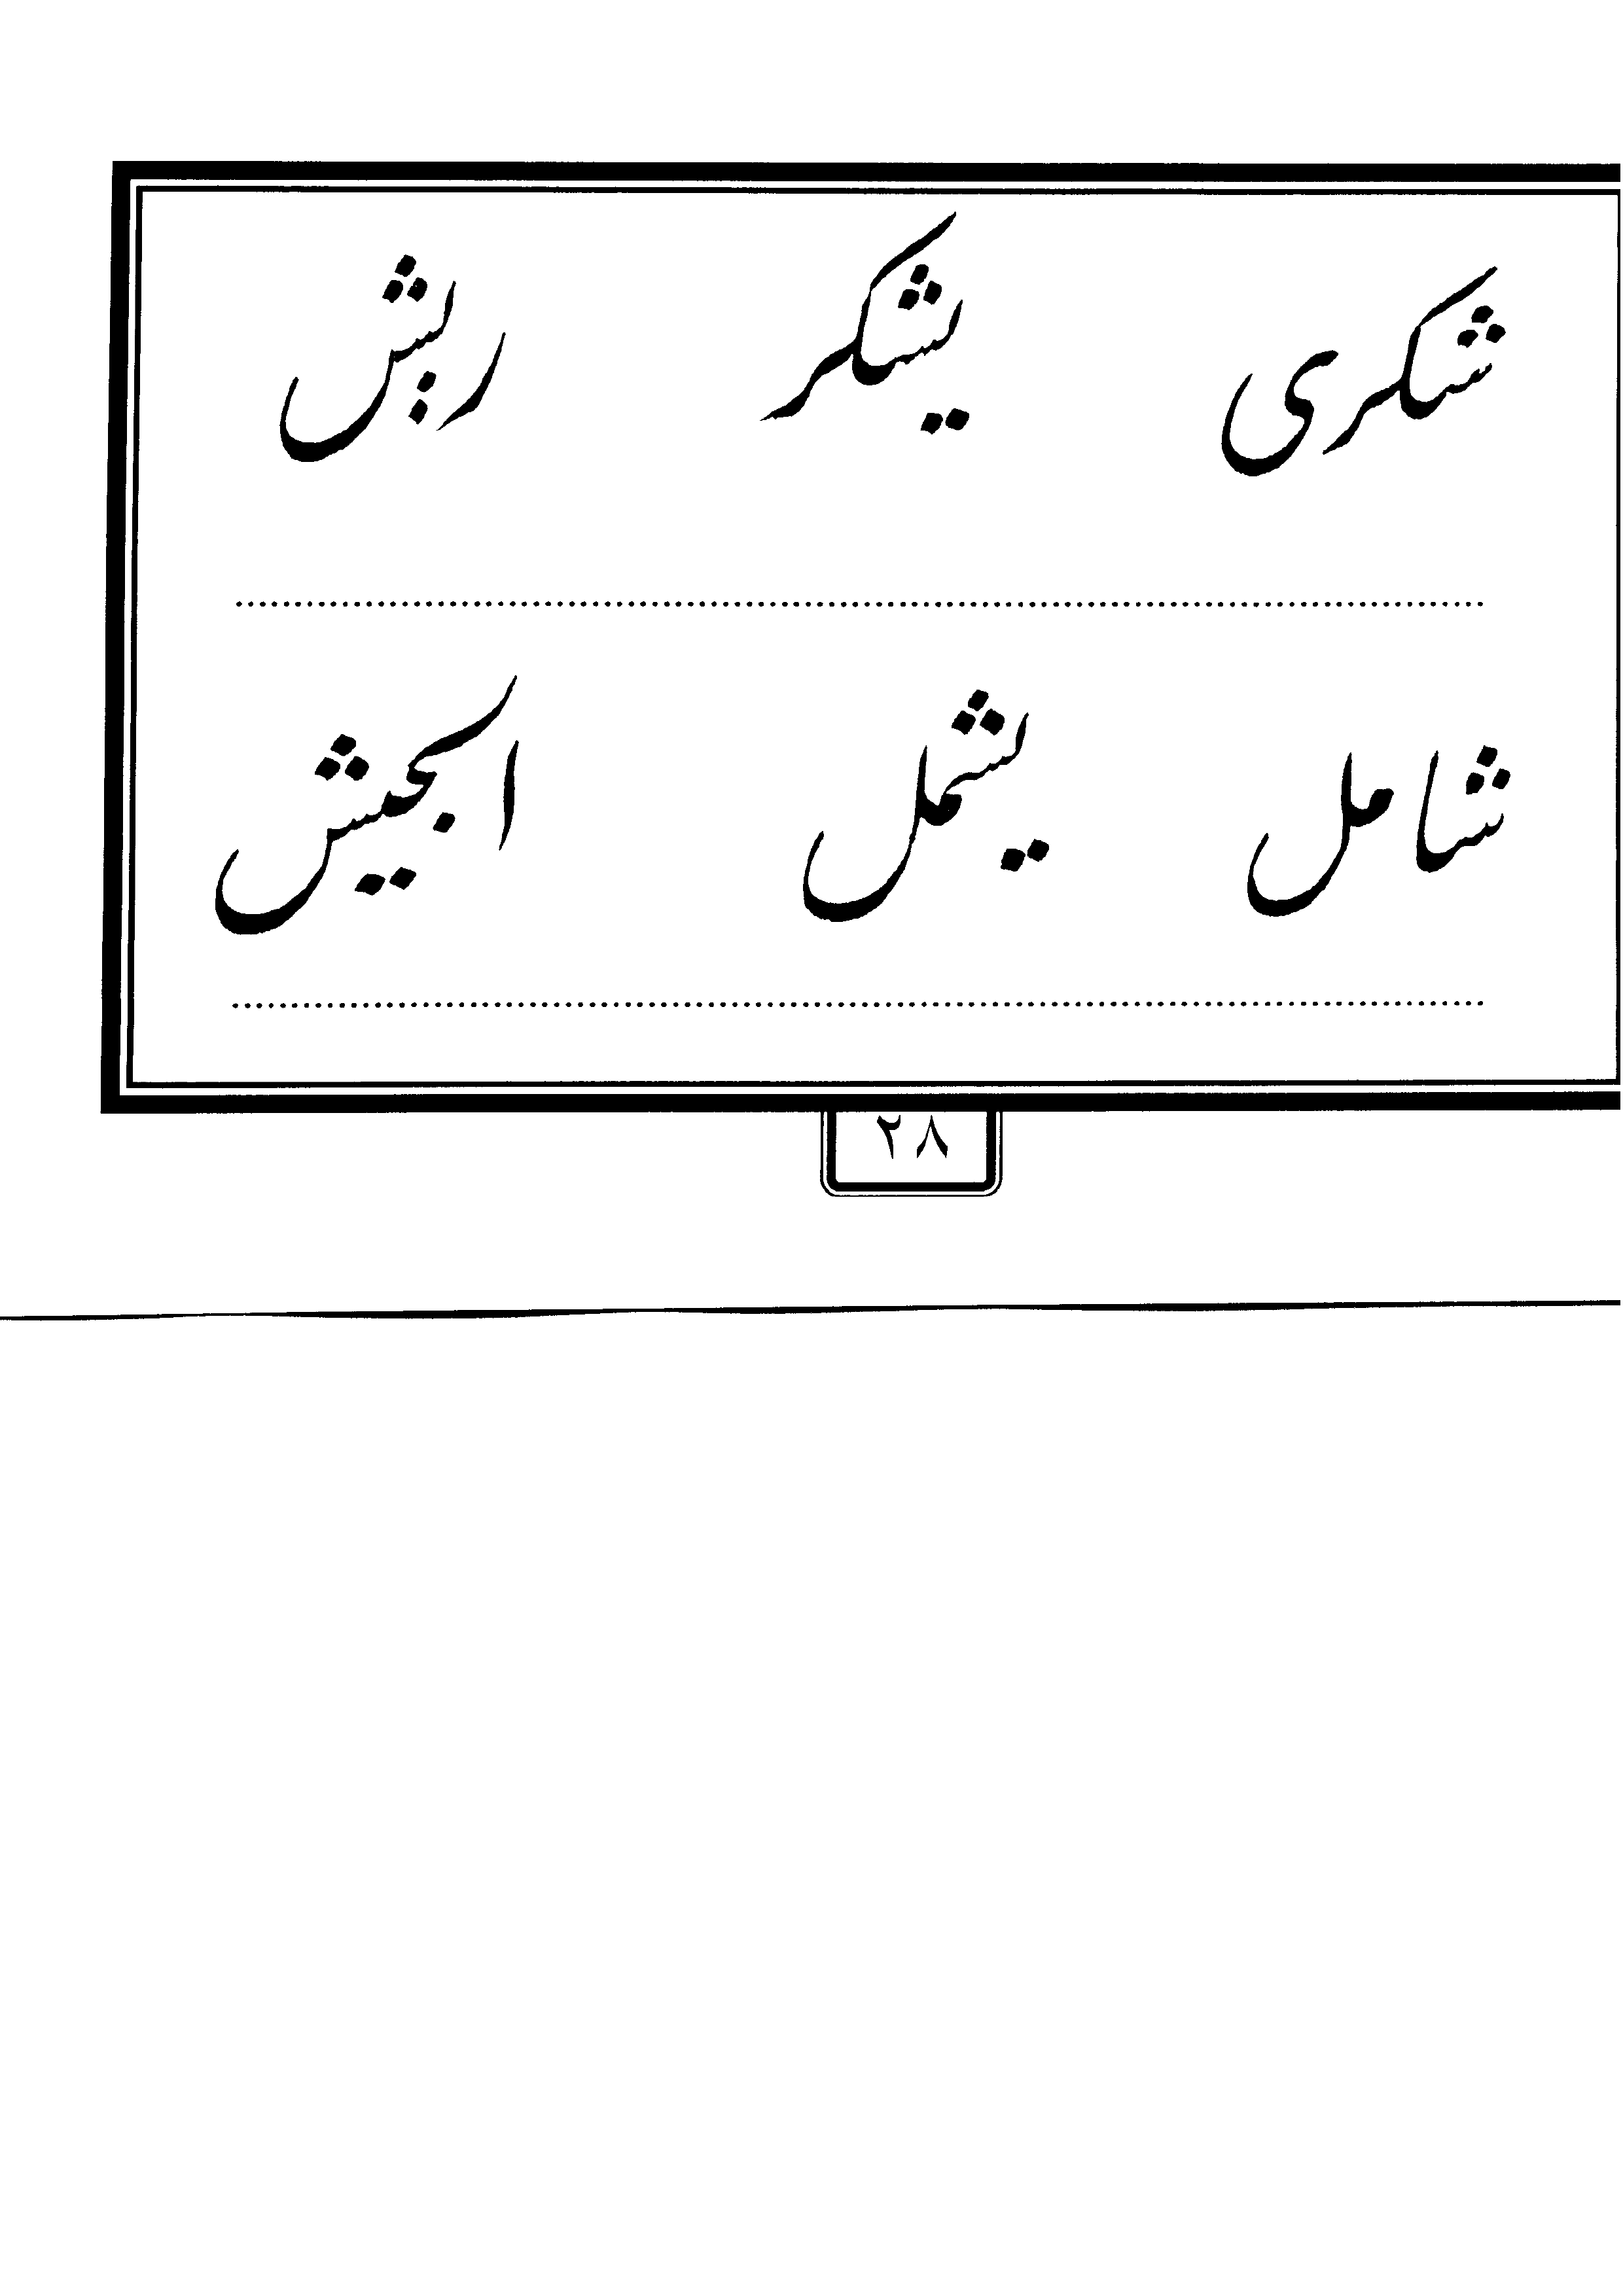 شكرى يشكر ريش
شامل يشمل الجيش
٢٨